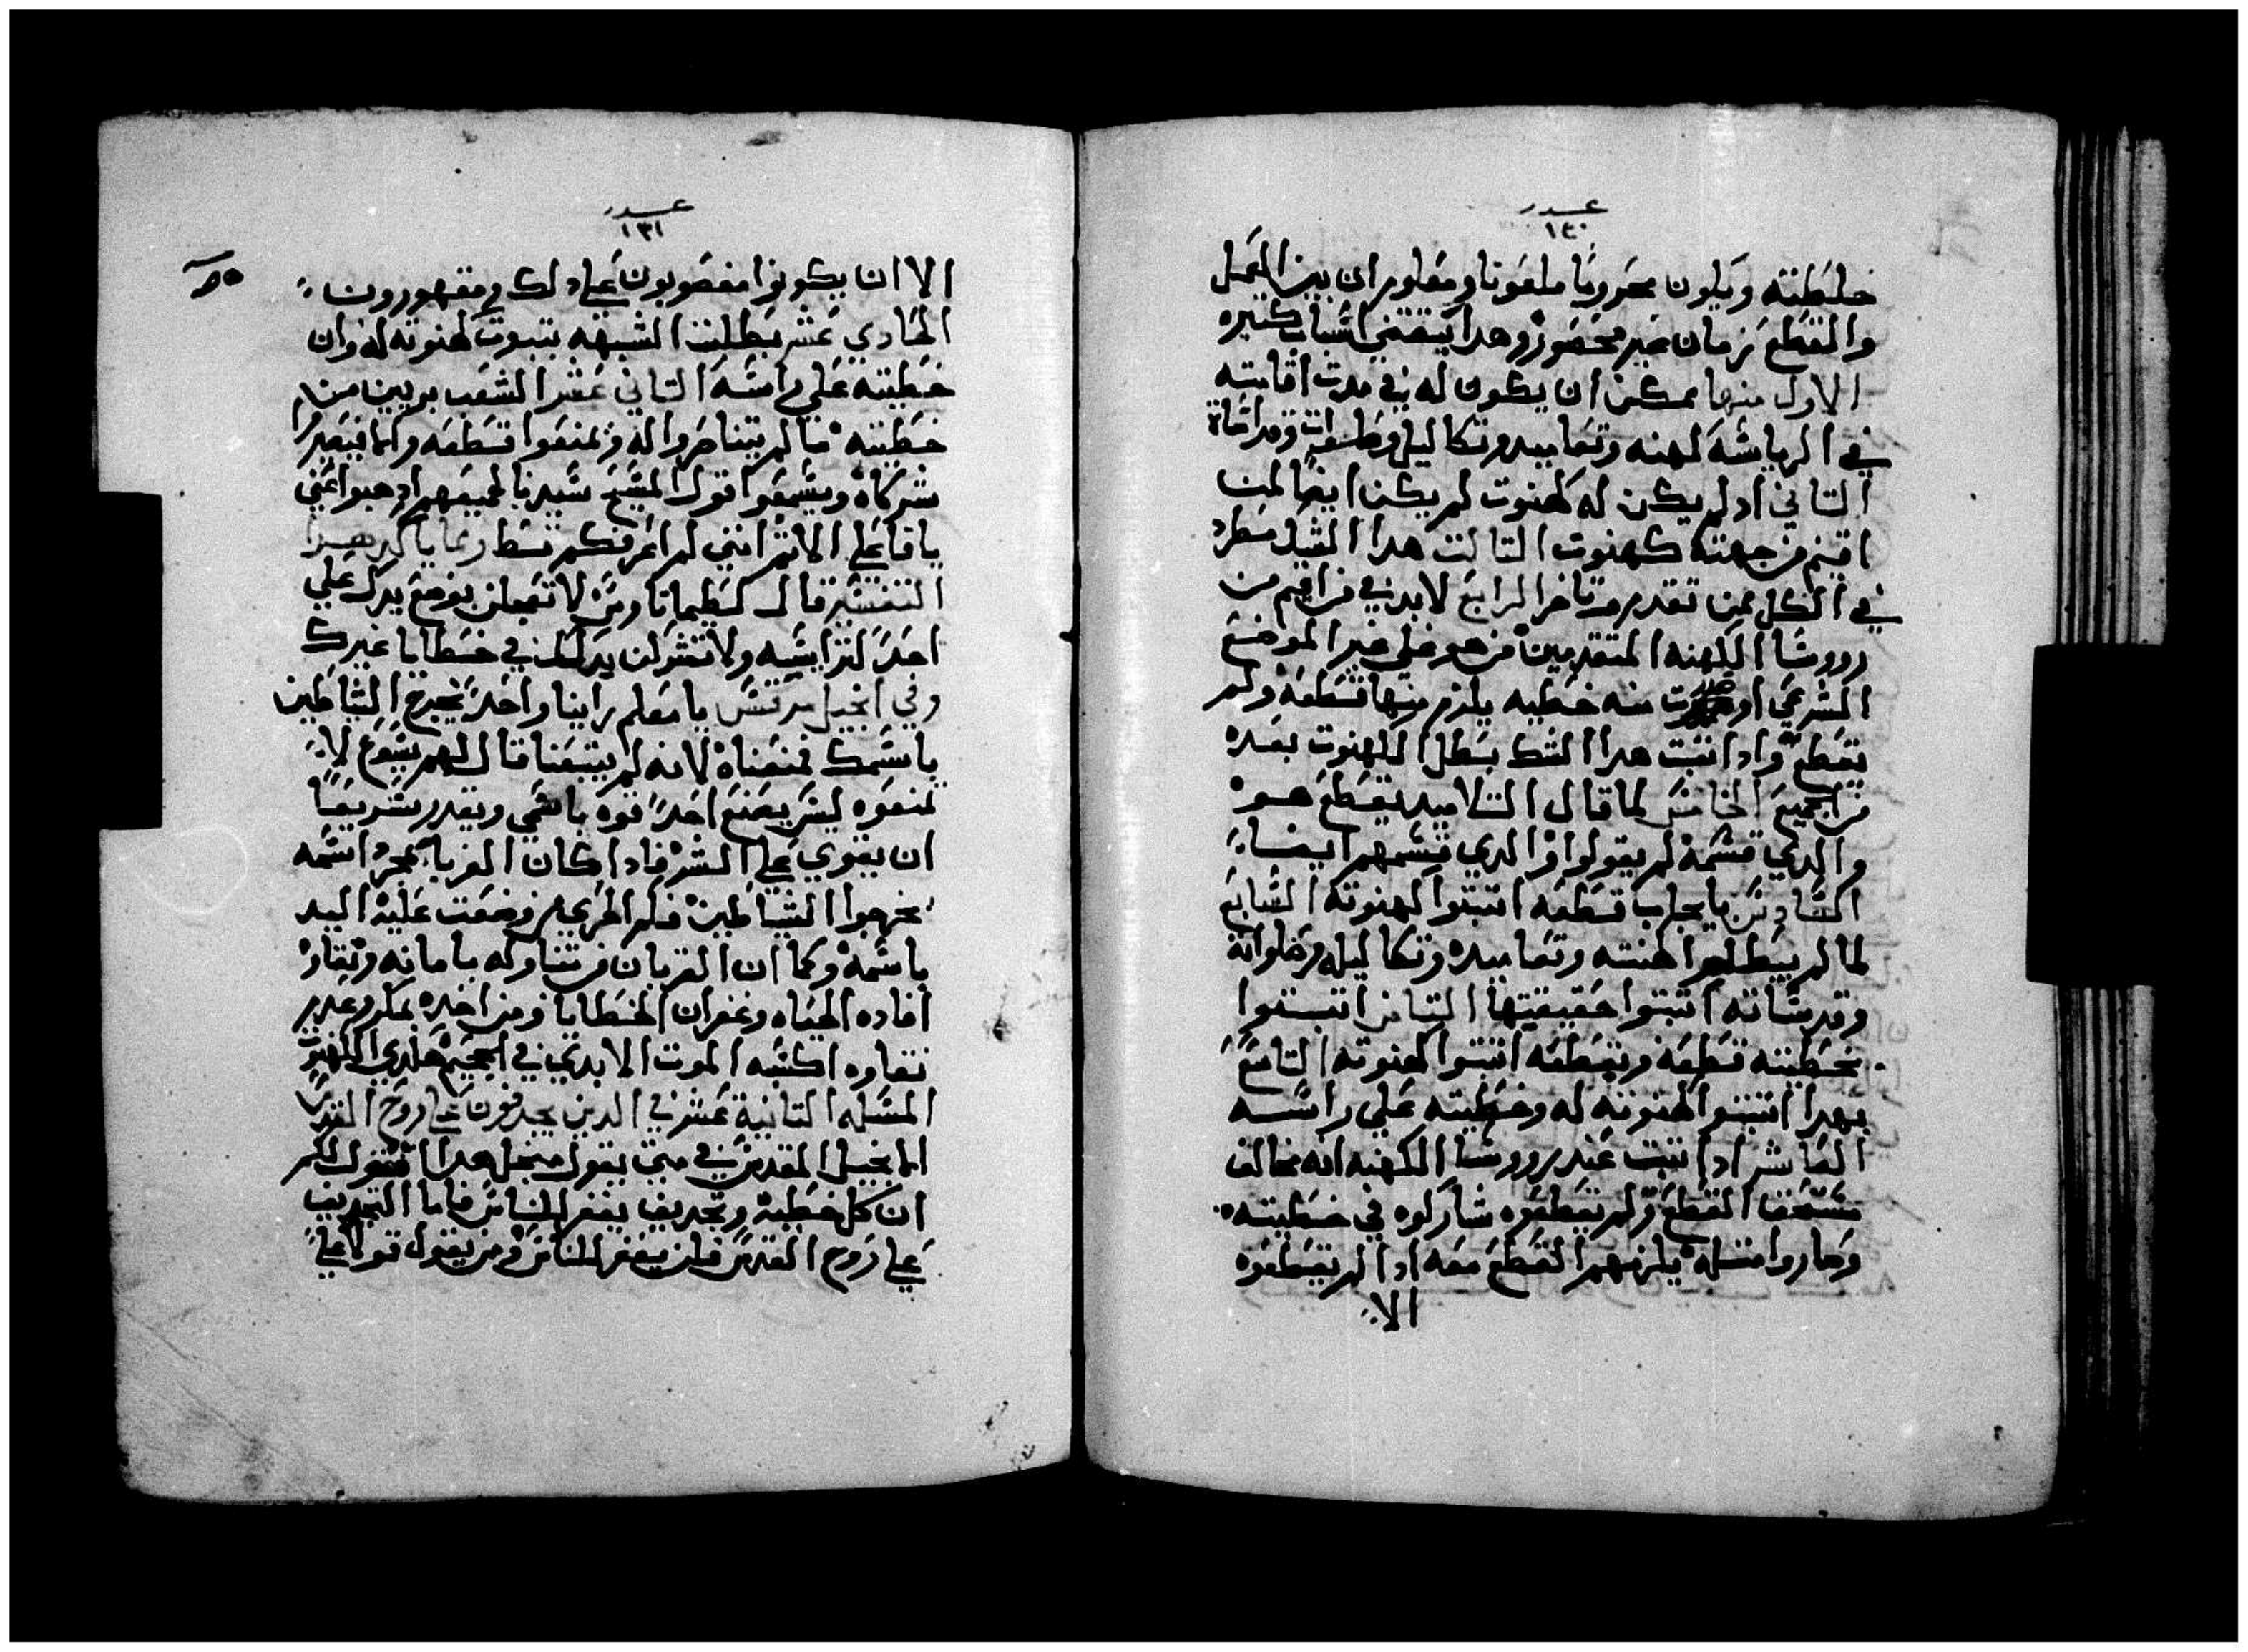 عدد
١٤٠
خطيته ويكون محروما ملعونا ومعلوم ان بين العمل
والقطع زمان غير محصور وهدا يقتضي اشباب كتيره
الاول منها ممكن ان يكون له في مدت اقامته
في الرياشه كهنه وتعاميد وتكاليل
التاني اد لم يكن له كهنوت لم يكن ايضا لمن
من جهته كهنوت التالت هدا الشبل مطرد
في الكل ممن تقدم وتاخر الرابع لابد في من
رووشا الكهنه المتقدمين من هو علي غير الموضع
الشرعي او صدرت منه خطيه يلزم منها قطعه ولم
تقطع وادا تبت هدا الشك بطل الكهنوت بعده
من الجميع الخامس لما قال التلاميد يقطع هو
والدي قشمه لم يقولوا والدي قشمهم ايضا
السادس بايجاب قطعه اتبتوا كهنوته السابع
لما لم يبطلوا كهنته وتعاميده وتكاليله وصلواته
وقدساته اتبتوا حقيقيتها التامن اتبتوا
بخطيته قطعه وبقطعه اتبتوا كهنوته التاسع
بهدا اتبتوا كهنوته له وخطيته علي راسه
العاشر ادا تبت عند رووشا الكهنه انه مخالف
مستحق القطع ولم يقطعوه شاركوه في خطيته
وصاروا متله يلزمهم القطع معه ادا لم يقطعوه
الا
عدد
١٣١
الا ان يكونوا مغصوبون علي دلك ومقهورون
الحادي عشر بطلت الشبهه بتبوت كهنوته له وان
خطيته علي راسه التاني عشر الشعب بريين من
خطيته ما لم يتناصروا له ويمنعوا قطعه والا فيصيروا
شركاه ويسمعوا قول المسيح سيدنا لجميعهم ادهبوا عني
يا فاعلي الاتم انني لم اعرفكم قط ومما ياكد هدا
التفسير قال لطيماتاوس لا تعجلن بوضع يدك علي
احد لترايسه ولا تشركن يدك في خطايا غيرك
وفي انجيل مرقس يا معلم راينا واحد يخرج الشياطين
باسمك فمنعناه لانه لم يتبعنا قال لهم يسوع لا
تمنعوه ليس يصنع احد قوه باسمي ويقدر سريعا
ان يقوي علي الشر فادا كان الغربا بمجرد اسمه
يخرجوا الشياطين فكم الحري من وضعت عليه اليد
باسمه وكما ان القربان من تناوله بامانه ونقاوه
افاده الحياه وغفران الخطايا ومن اخده بمكر وعدم
نقاوه اكسبه الموت الابدي في الجحيم هكدي الكهنوت
المسله التانية عشر في الدين يجدفون علي روح القدس
الانجيل المقدس في متي يقول من اجل هدا اقول لكم
ان كل خطية وتجديف يغفر للناس فاما التجديف
علي روح القدس فلن يغفر للناس ومن يقول قولا علي